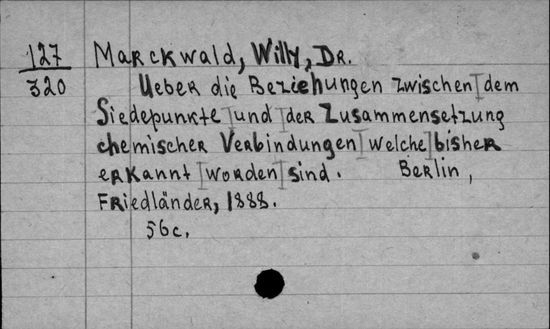 127 Marckwald, Willy, Dr.
320 Ueber die Beziehungen zwischen dem
Siedepunkte und der Zusammensetzung
chemischer Verbindungen welche bisher
erkannt worden sind. Berlin,
Friedländer, 1888.
56c.